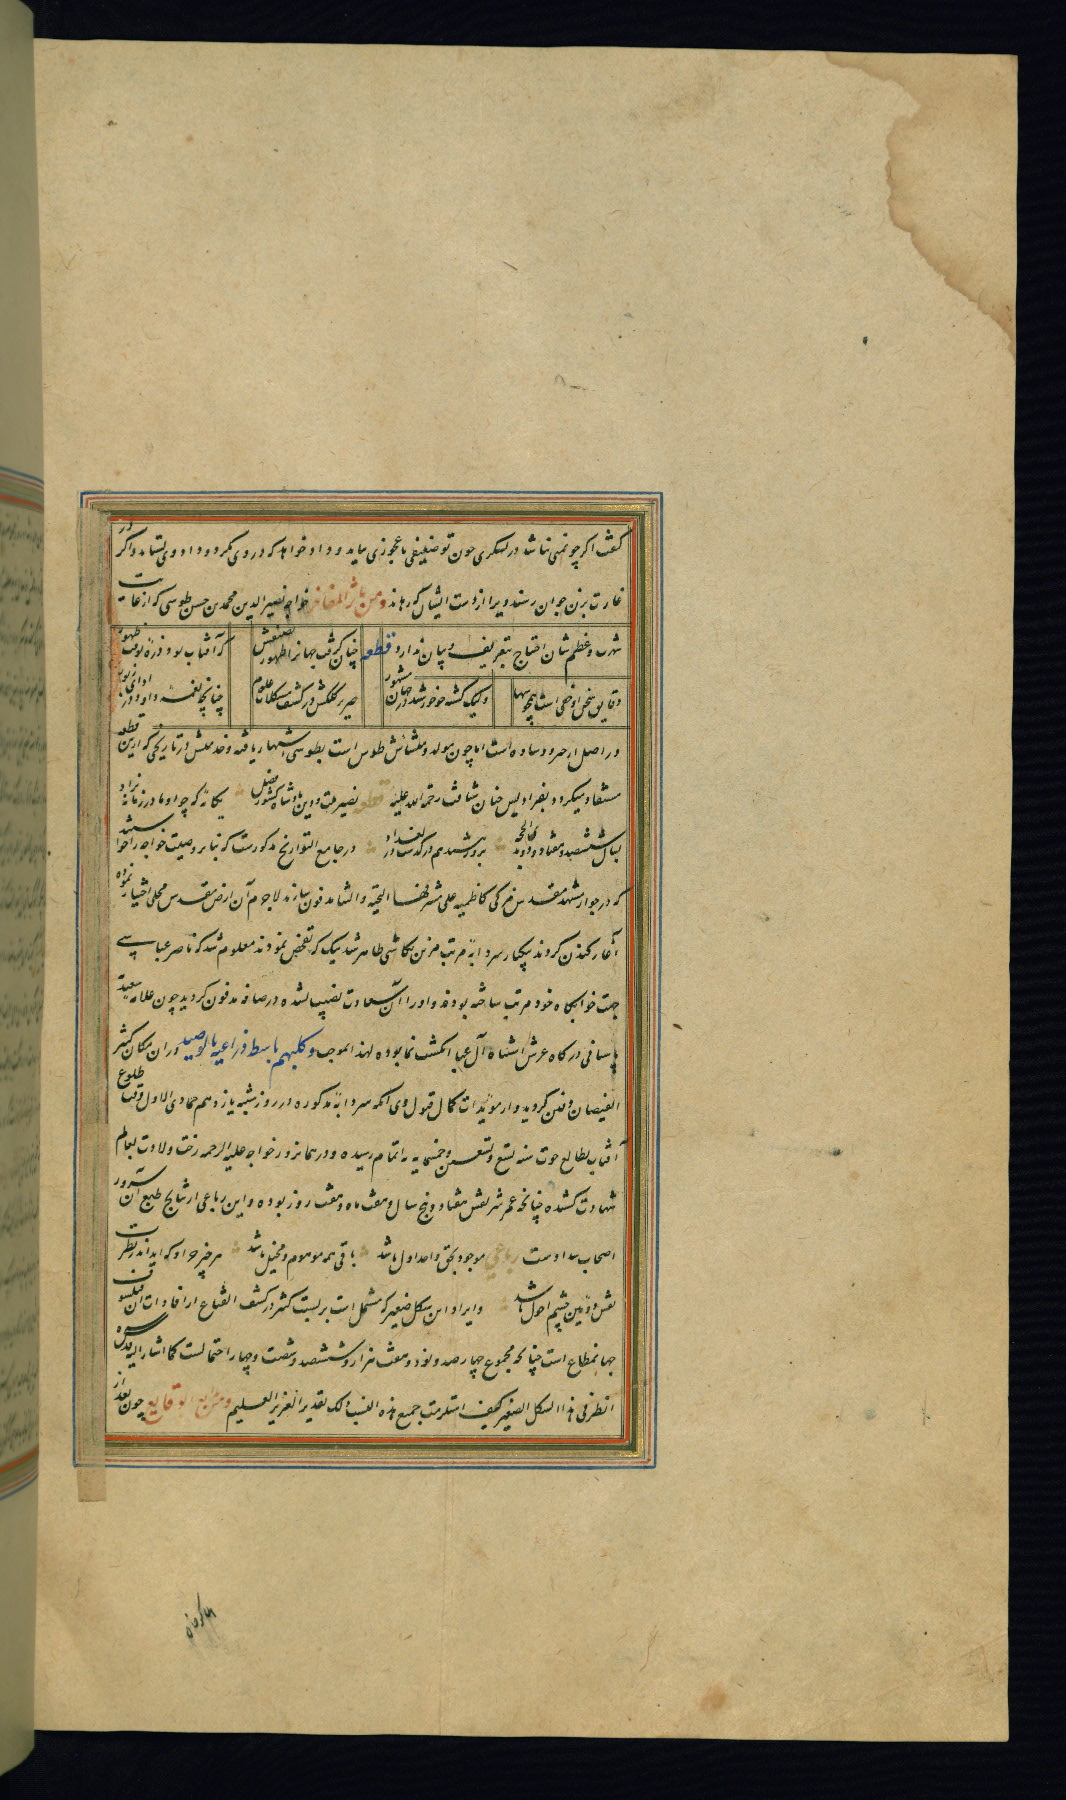 گفت اگر چو تمنی نباشد در لشکری چون تو ضعیفی با عجوزی بیاید و داد خواهد که دزدی مکرد و داد وی نستاند و اگر در
غارت بزن جوان رسند ویرا از دست ایشان که رهاند ومن مآثر المفاخر خواجه نصیر الدین محمد بن حسن طوسی که از غایت
شهرت و عظم شان احتیاج بتعریف و بیان ندارد قطعه چنان گرفت جهانرا ظهور که آفتاب بود ذره ظهور
دقایق سخن او خفی است همچو سها ولیک گشته چو خورشید در جهان مشهور صریر کلکش در کشف مشکلات علوم چنانچه نغمه داود در ادای زبور
در اصل از جهرود ساوه است اما چون مولد و منشائش طوس است بطوسی اشتهار یافته و خدمتش در تاریخی که ازین قطعه
مستفاد میگردد بفرادیس جنان شتافت رحمة الله علیه قطعه نصیر ملت و دین پادشاه کشور فضل یگانه که چو او مادر زمانه نزاد
بسال ششصد و هفتاد و دو بذی الحجه بروز هیجدهم درگذشت در بغداد در جامع التواریخ مذکورست که بنابر وصیت خواجه را خواستند
که در جوار مشهد مقدس مزکی کاظمیه علی مشرفها التحیة والثنا مدفون سازند لاجرم آن ارض مقدس محلی اختیار نموده
آغاز کندن کردند یکبار سردابه مرتب مزین بکاشی ظاهر شد نیک که تفحص نمودند معلوم شد که ناصر عباسی
جهت خوابگاه خود مرتب ساخته بودند و او را آن سعادت نصیب نشده در رصافه مدفون گردید چون علامه سعید
پاسبانی درگاه عرش اشتباه آل عبا انگشت نما بوده لهذا بموجب وکلبهم باسط ذراعیه بالوصید در آن مکان کثیر
الفیضان دفن گردید و از مؤیدات کمال قبول وی آنکه سردابه مذکوره در روز شنبه یازدهم جمادی الاول وقت طلوع
آفتاب بطالع حوت سنه تسع وتسعین وخمسمایه به اتمام رسیده و در همانروز خواجه علیه الرحمه رخت ولادت بعالم
شهادت کشیده چنانچه عمر شریفش هفتاد و پنج سال و هفت ماه و هفت روز بوده و این رباعی از نتایج طبع آن سرور
اصحاب سداد است رباعی موجود بحق واحد اول باشد باقی همه موهوم و مخیل باشد هر چیز جز او که آید اندر نظرت
نقش دومین چشم احول باشد و ایراد این شکل صغیر که مشتمل است بر بسیت کثیر در کشف القناع از افادات آن فیلسوف
جهانمطاع است چنانچه مجموع چهارصد و نود و هفت هزار و ششصد و شصت و چهار احتمالست کما اشار الیه قدس سره
انظر فی هذا الشکل الصغیر کیف استلزمت جمیع هذه النسب ذلک تقدیر العزیز العلیم ومن بدایع الوقایع چون بعد از